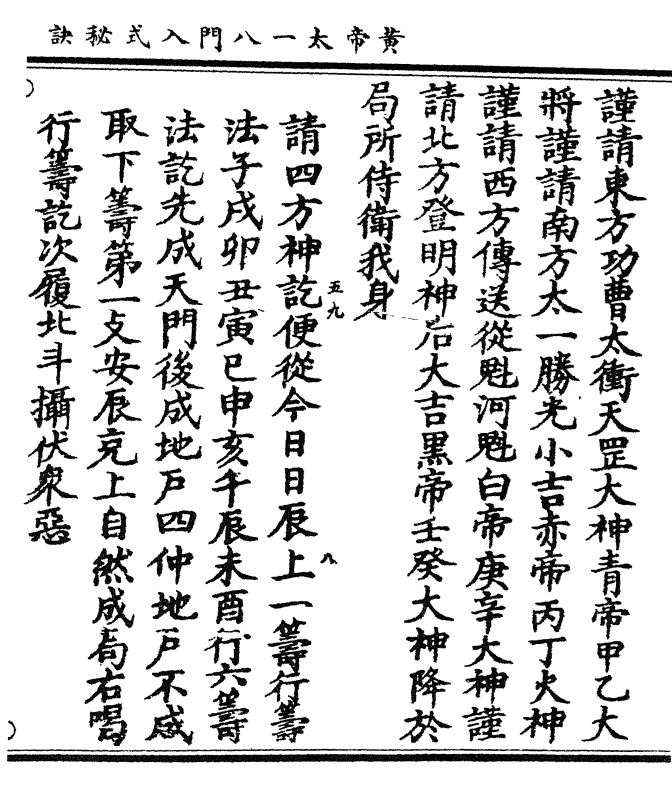 黃帝太一八門入式秘訣
謹請東方功曹太衝天罡大神青帝甲乙大
將謹請南方太一勝光小吉赤帝丙丁火神
謹請西方傳送從魁河魁白帝庚辛大神謹
請北方登明神后大吉黑帝壬癸大神降於
局所侍衛我身
請四方神訖五九便從今日日辰上八一籌行籌
法子戌卯丑寅巳申亥午辰未酉行六籌
法訖先成天門後成地戸四仲地戸不成
取下籌第一攴安辰克上自然成局右喝
行籌訖次履北斗攝伏衆惡